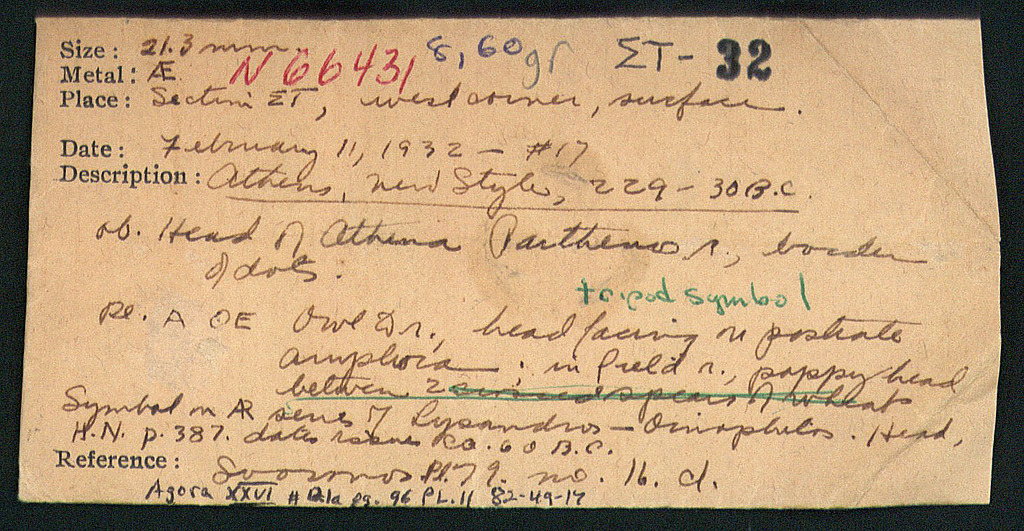 Size : 21.3 mm. 8,60gr ΣΤ- 32
Metal : Æ N 66431
Place : Section ΣΤ, west corner, surface.
Date : February 11, 1932 - #17
Description : Athens, New Style, 229-30 B.C.
ob. Head of Athena Parthenos r., border
of dots.
tripod symbol
Re. A ΘE Owl r., head facing on postrate
amphora ; in field r., poppy head
between 2 ears of wheat
Symbol on AR series of Lysandros - Oinophilos. Head,
H.N. p. 387. dates issue ca. 60 B.C.
Reference : Svoronos Pl. 79. no. 16. d.
Agora XXVI pg. 96 PL. 11 82-49-17